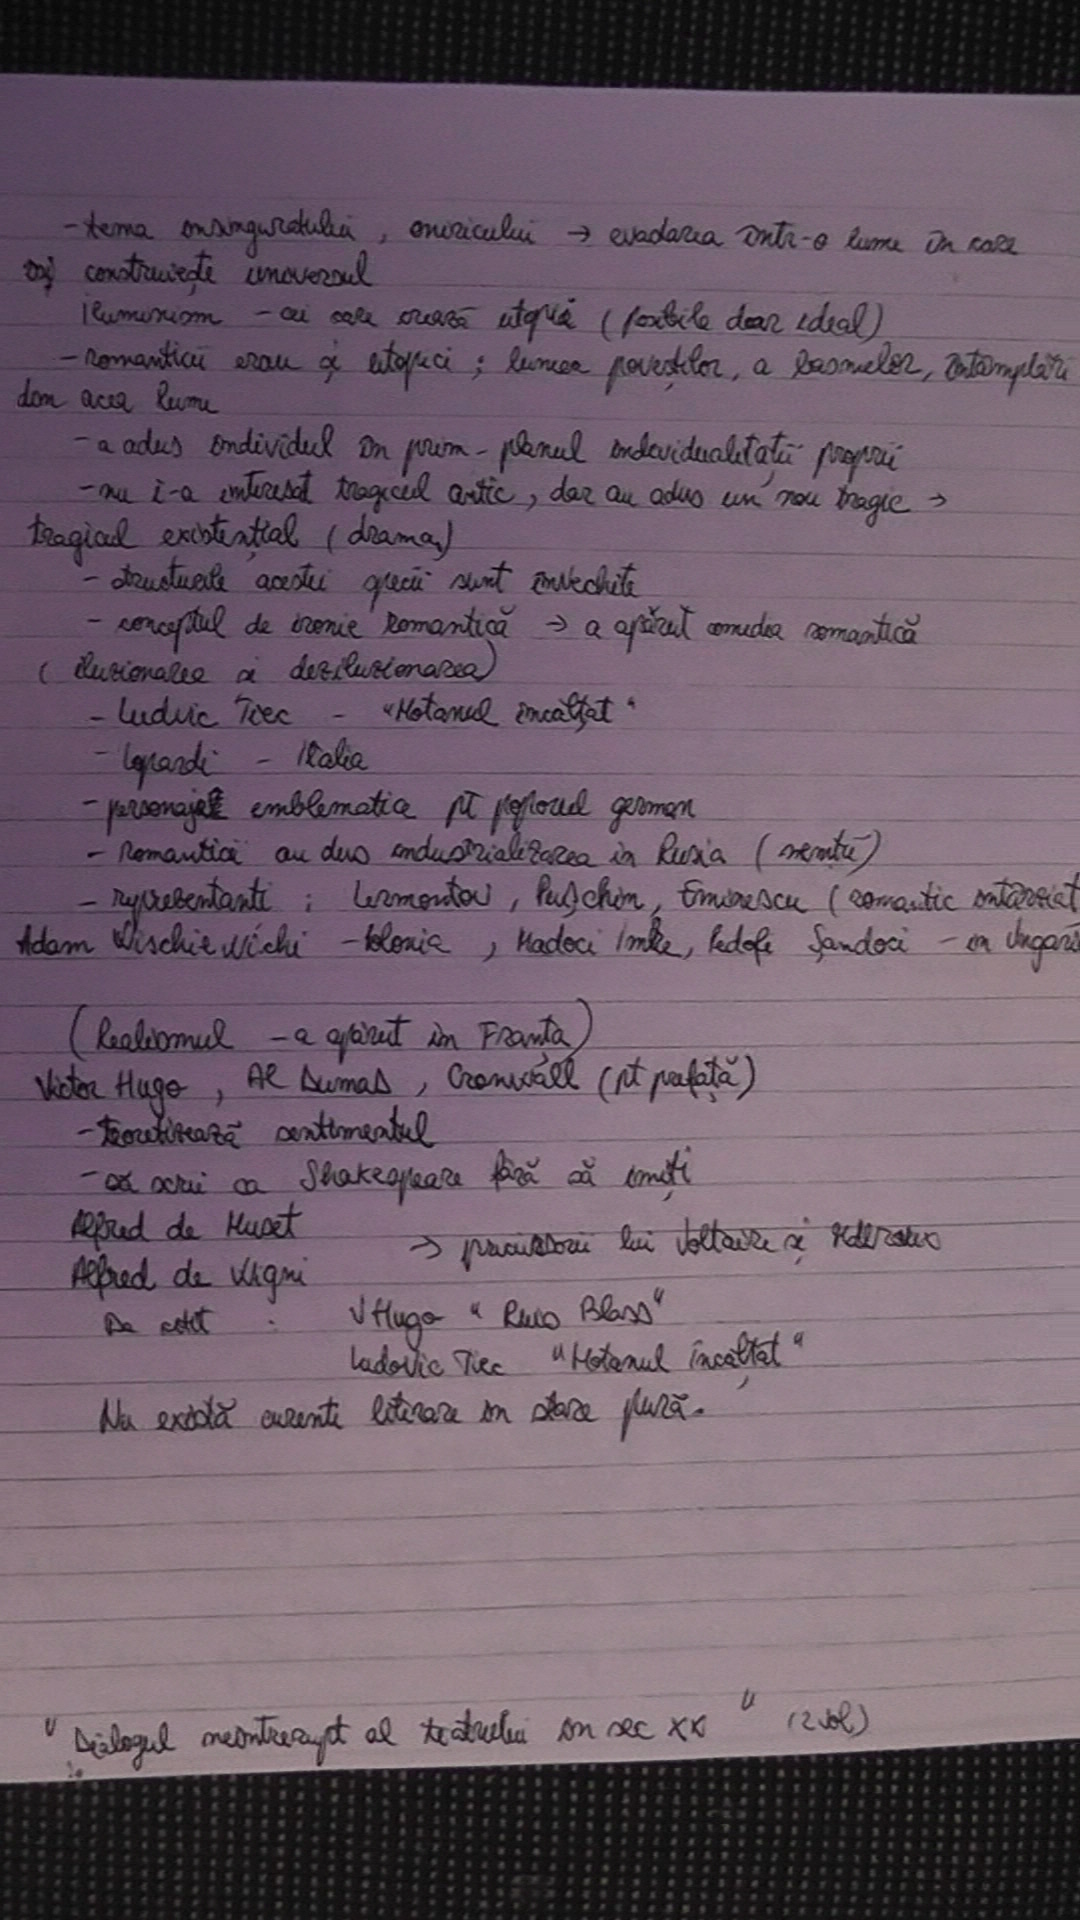 - tema însinguratului, oniricului → evadarea într-o lume în care
își construiește universul
iluminism - cei care crează utopia (posibile doar ideal)
- romanticii erau și utopici ; lumea poveștilor, a basmelor, întâmplări
din acea lume
- a adus individul în prim-planul individualității proprii
- nu i-a interesat tragicul antic, dar au adus un nou tragic →
tragicul existențial (drama)
- structurile acestei grecii sunt învechite
- conceptul de ironie romantică → a apărut comedia romantică
(iluzionarea și deziluzionarea)
- Ludvic Tiec - "Motanul încălțat"
- Lepardi - Italia
- personaje emblematice pt poporul german
- romantici au dus industrializarea in Rusia (nemții)
- reprezentanti : Lermontov, Pușchin, Eminescu (romantic întârziat
Adam Mischievichi - Polonia, Madoci Imre, Pedofi Șandoci - în Ungaria
(Realismul - a apărut în Franța)
Victor Hugo, Al Dumas, Cromwall (pt prefață)
- teoretizează sentimentul
- să scrii ca Shakespeare fără să imiți
Alfred de Muset
→ precursorii lui Voltaire și
Alfred de Vigni
De citit : V Hugo "Ruis Blass"
Ludovic Tiec "Motanul încălțat"
Nu există curente literare în stare pură.
"Dialogul neîntrerupt al teatrului în sec XX" (2 vol)